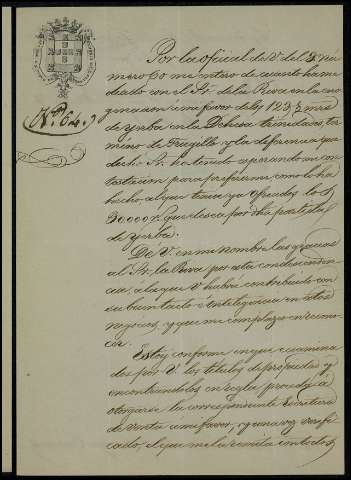 Nº 64.
Por la oficial de V. del 8 nu
mero 60 me entero de cuanto ha me
diado con el Sr. de la Riva en la ena
genacion á mi favor de las 123 ½ mrs
de yerba en la Dehesa trinidades, ter
mino de Trugillo y la deferencia que
dicho Sr. ha tenido esperando mi con
testacion para preferirme como lo ha
hecho al que tenia ya ofrecidos los
30000 r. que desea por dha parte la
de yerba.
Dé V. en mi nombre las gracias
al Sr. la Riva por esta condescenden
cia, á la que V. habrá contribuido con
su buen tacto é inteligencia en estos
negocios, y que me complazco en recono
cer.
Estoy conforme en que examina
dos por V. los titulos de propiedad y
encontrandolos en regla proceda á
otorgarse la correspondiente Escritura
de venta á mi favor, y una vez verifi
cado, el que me la remita con todos